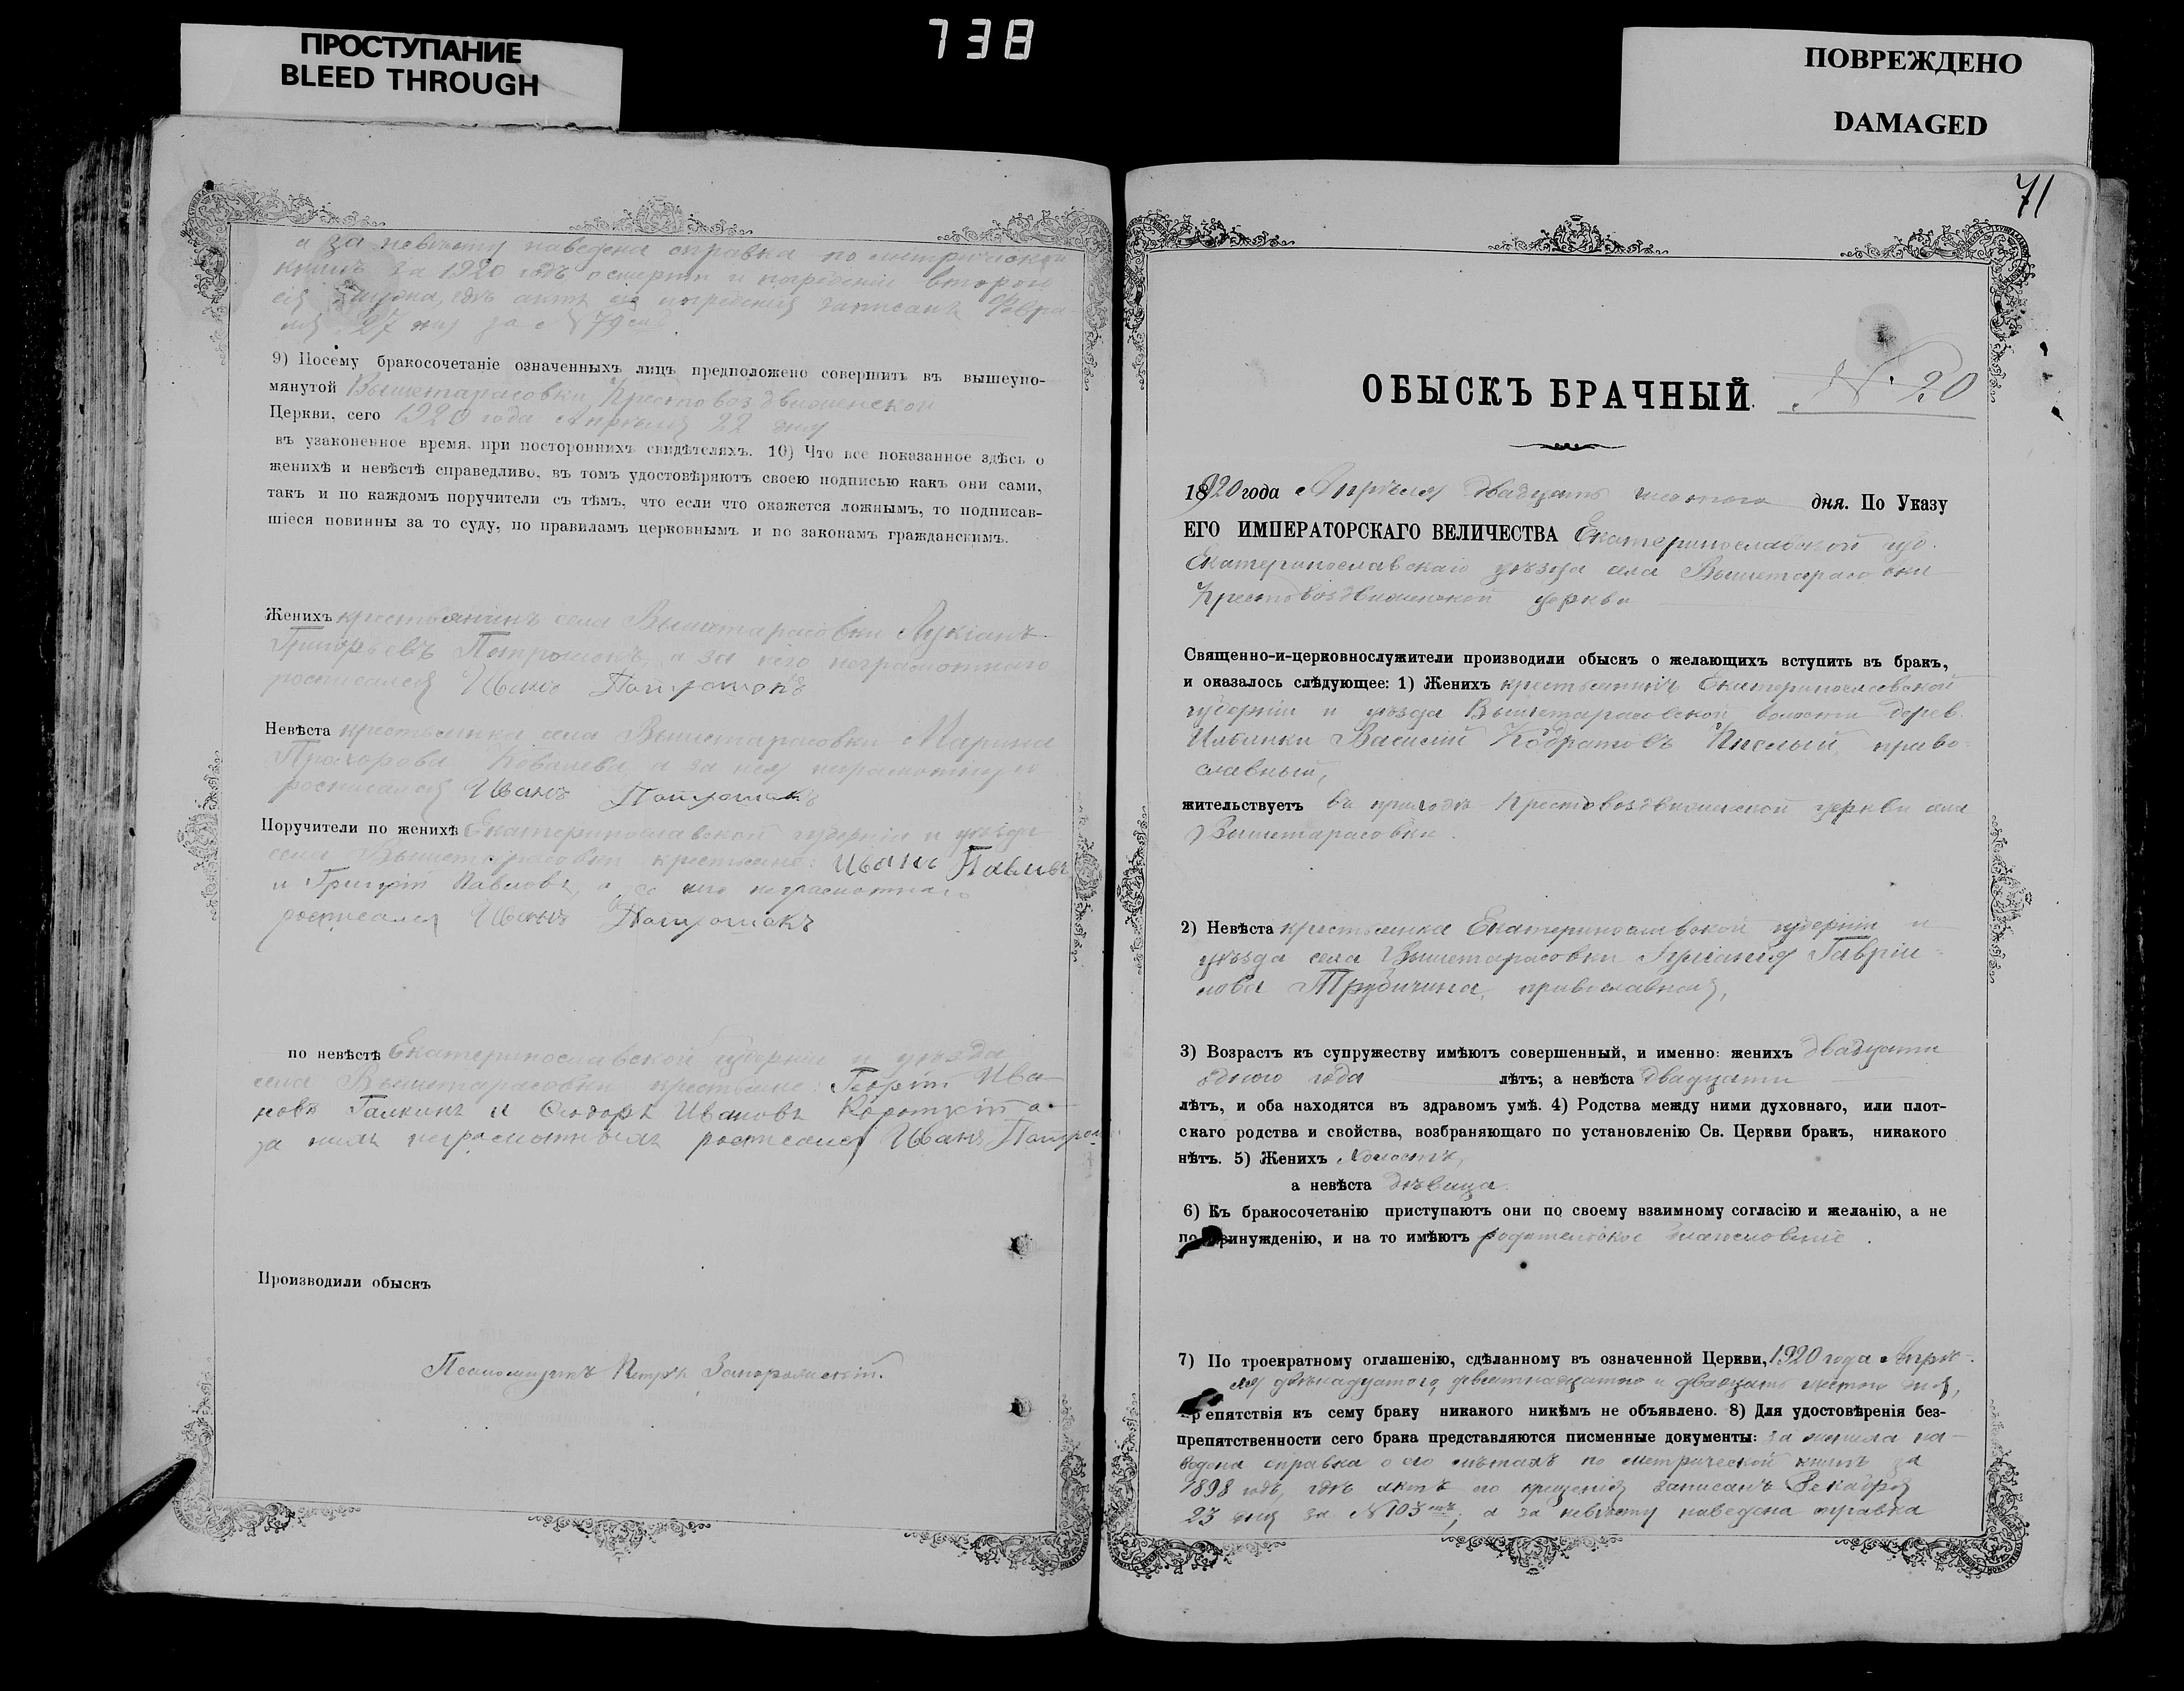 738
ПРОСТУПАНИЕ
BLEED THROUGH
ПОВРЕЖДЕНО
DAMAGED
а за невѣсту наведена справка по метрической
книгѣ за 1920 годъ о смерти и погребеніи второй
ея мужа, гдѣ актъ его погребенія записанъ Февра-
ля 27 дня за №79
9) Посему бракосочетаніе означенныхъ лицъ предположено совершить въ вышеупо-
мянутой Вышетарасовки, Крестовоздвиженской
Церкви, сего 1920 года Апрѣля 22 дня
въ узаконенное время, при постороннихъ свидѣтеляхъ. 10) Что все показанное здѣсь о
женихѣ и невѣстѣ справедливо, въ томъ удостовѣряютъ своею подписью какъ они сами,
такъ и по каждомъ поручители съ тѣмъ, что если что окажется ложнымъ, то подписав-
шіеся повинны за то суду, по правиламъ церковнымъ и по законамъ гражданскимъ.
Женихъ крестьянинъ села Вышетарасовки Лукіанъ
Григорьевъ Патрошокъ, а за него неграмотнаго
росписался Иванъ Патрошокъ
Невѣста крестьянка села Вышетарасовки Марина
Прохорова Ковалева а за нея неграмотную
росписался Иванъ Патрошокъ
Поручители по женихѣ Екатеринославской губерніи и уѣзда
села Вышетарасовки крестьяне: Иванъ Павловъ
и Григорій Павловъ, а за него неграмотнаго
росписался Иванъ Патрошокъ
по невѣстѣ Екатеринославской губерніи и уѣзда
села Вышетарасовки крестьяне: Георгій Ива-
новъ Галкинъ и Сидоръ Ивановъ Короткій а
за нихъ неграмотныхъ росписался Иванъ
Производили обыскъ
Псаломщикъ Петръ Запорожскій.
71
ОБЫСКЪ БРАЧНЫЙ. № 20
1920 года Апрѣля двадцать шестого дня. По Указу
ЕГО ИМПЕРАТОРСКАГО ВЕЛИЧЕСТВА Екатеринославской губ.
Екатеринославскаго уѣзда села Вышетарасовки
Крестовоздвиженской церкви
Священно-и-церковнослужители производили обыскъ о желающихъ вступить въ бракъ,
и оказалось слѣдующее: 1) Женихъ крестьянинъ Екатеринославской
губерніи и уѣзда Вышетарасовской волости дерев.
Ильинки Василій Кодратовъ Кислый, право-
славный,
жительствуетъ въ приходѣ Крестовоздвиженской церкви села
Вышетарасовки.
2) Невѣста крестьянка Екатеринославской губерніи и
уѣзда села Вышетарасовки Іуліанія Гавріи-
лова Трубичина, православная,
3) Возрастъ къ супружеству имѣютъ совершенный, и именно: женихъ двадцати
одного года лѣтъ; а невѣста двадцати
лѣтъ, и оба находятся въ здравомъ умѣ. 4) Родства между ними духовнаго, или плот-
скаго родства и свойства, возбраняющаго по установленію Св. Церкви бракъ, никакого
нѣтъ. 5) Женихъ холостъ,
а невѣста дѣвица.
6) Къ бракосочетанію приступаютъ они по своему взаимному согласію и желанію, а не
по принужденію, и на то имѣютъ родительское благословеніе.
7) По троекратному оглашенію, сдѣланному въ означенной Церкви, 1920 года Апрѣ-
ля двѣнадцатого, девятнадцатого и двадцать шестого дня,
препятствія къ сему браку никакого никѣмъ не объявлено. 8) Для удостовѣренія без-
препятственности сего брака представляются писменные документы: за жениха на-
ведена справка о его лѣтахъ по метрической книгѣ за
1898 годъ, гдѣ актъ его крещенія записанъ Декабря
23 дня за №103мъ; а за невѣсту наведена справка